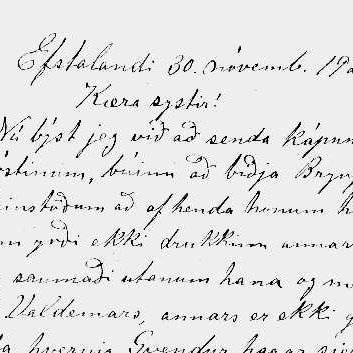 Efstalandi 30. nóvemb. 19
Kæra systir!
Nú býst jeg við að senda kápun
óstinum, búinn að biðja Bryn
instöðum að afhenda honum h
yrði ekki drukkinn annar
saumaði utanum hana og m
Valdemars, annars er ekki g
hvernig Gvendur hagar